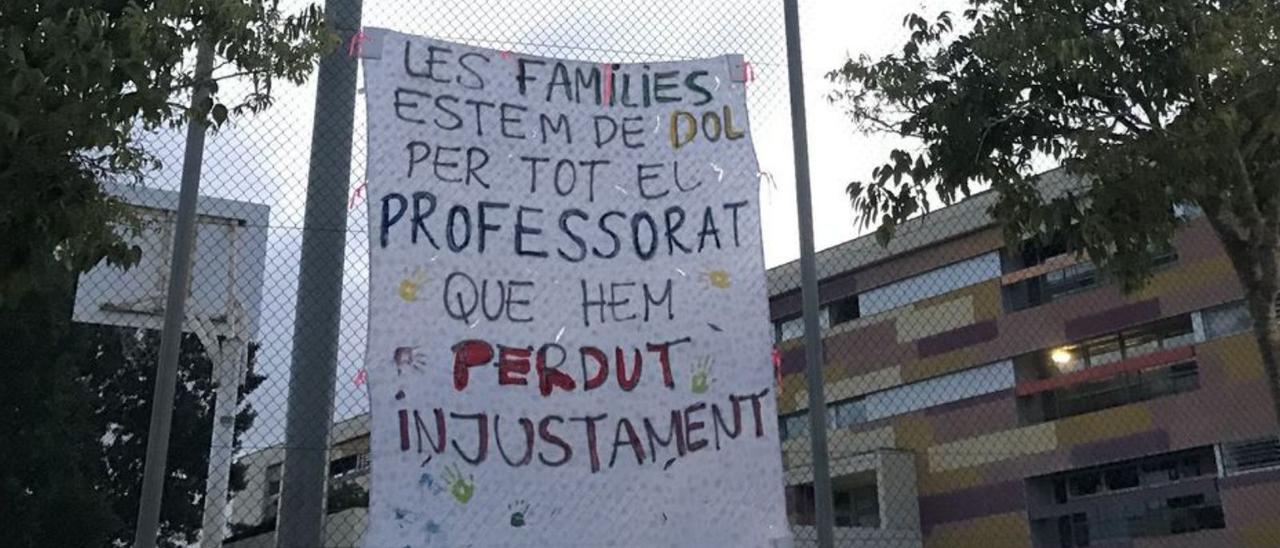 LES FAMÍLIES
ESTEM DE DOL
PER TOT EL
PROFESSORAT
QUE HEM
PERDUT
INJUSTAMENT